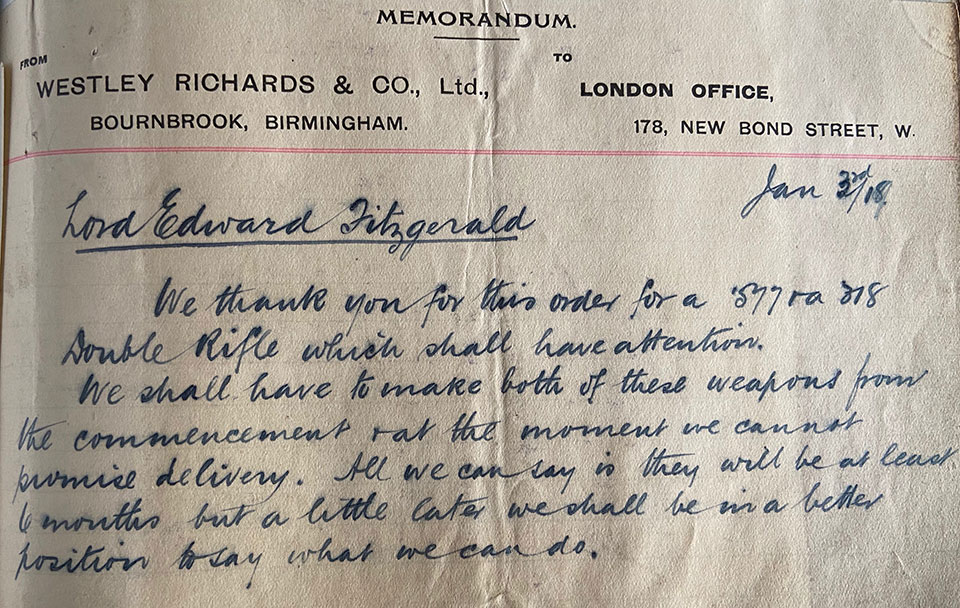 MEMORANDUM.
FROM
TO
WESTLEY RICHARDS & CO., Ltd.,
LONDON OFFICE,
BOURNBROOK, BIRMINGHAM.
178, NEW BOND STREET, W.
Jan 3rd/18
Lord Edward Fitzgerald
We thank you for this order for a '577 & a 318
Double Rifle which shall have attention.
We shall have to make both of these weapons from
the commencement & at the moment we cannot
promise delivery. All we can say is they will be at least
6 months but a little later we shall be in a better
position to say what we can do.